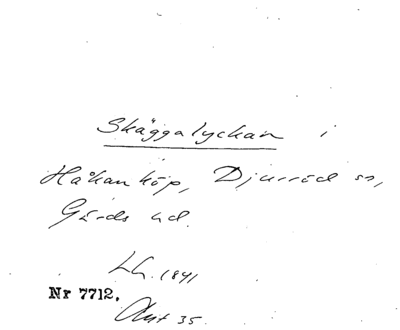 Skäggalyckan i
Håkanköp, Djurröd sn,
Gärds hd.
LG. 1841
Nr 7712.
Akt 35.